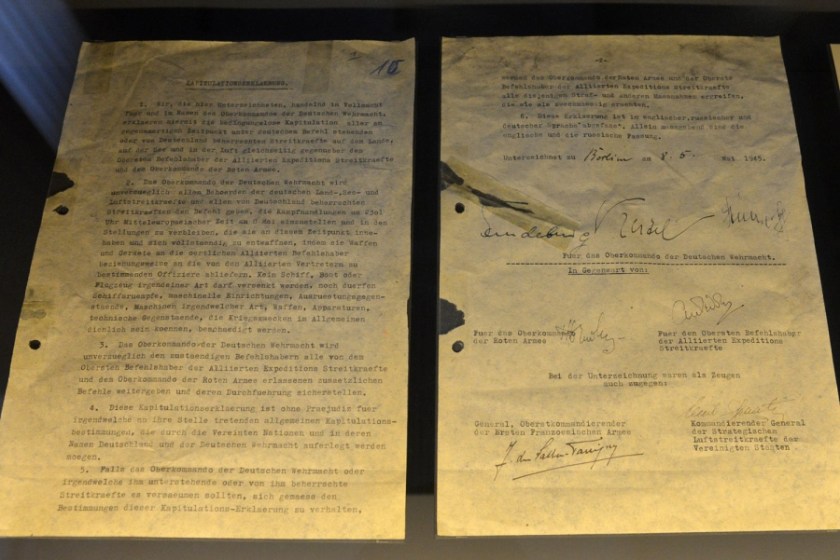 KAPITULATIONSERKLAERUNG.
16
1. Wir, die hier Unterzeichneten, handelnd in Vollmacht
fuer und im Namen des Oberkommandos der Deutschen Wehrmacht,
erklaeren hiermit die bedingungslose Kapitulation aller am
gegenwaertigen Zeitpunkt unter deutschem Befehl stehenden
oder von Deutschland beherrschten Streitkraefte auf dem Lande,
auf der See und in der Luft gleichzeitig gegenueber dem
Obersten Befehlshaber der Alliierten Expeditions Streitkraefte
und dem Oberkommando der Roten Armee.
2. Das Oberkommando der Deutschen Wehrmacht wird
unverzueglich allen Behoerden der deutschen Land-, See- und
Luftstreitkraefte und allen von Deutschland beherrschten
Streitkraeften den Befehl geben, die Kampfhandlungen um 2301
Uhr Mitteleuropaeischer Zeit am 8 Mai einzustellen und in den
Stellungen zu verbleiben, die sie an diesem Zeitpunkt inne-
haben und sich vollstaendig zu entwaffnen, indem sie Waffen
und Geraete an die oertlichen Alliierten Befehlshaber
beziehungsweise an die von den Alliierten Vertretern zu
bestimmenden Offiziere abliefern. Kein Schiff, Boot oder
Flugzeug irgendeiner Art darf versenkt werden, noch duerfen
Schiffsruempfe, maschinelle Einrichtungen, Ausruestungsgegen-
staende, Maschinen irgendwelcher Art, Waffen, Apparaturen,
technische Gegenstaende, die Kriegszwecken im Allgemeinen
dienlich sein koennen, beschaedigt werden.
3. Das Oberkommando der Deutschen Wehrmacht wird
unverzueglich den zustaendigen Befehlshabern alle von dem
Obersten Befehlshaber der Alliierten Expeditions Streitkraefte
und dem Oberkommando der Roten Armee erlassenen zusaetzlichen
Befehle weitergeben und deren Durchfuehrung sicherstellen.
4. Diese Kapitulationserklaerung ist ohne Praejudiz fuer
irgendwelche an ihre Stelle tretenden allgemeinen Kapitulations-
bestimmungen, die durch die Vereinten Nationen und in deren
Namen Deutschland und der Deutschen Wehrmacht auferlegt werden
moegen.
5. Falls das Oberkommando der Deutschen Wehrmacht oder
irgendwelche ihm unterstehende oder von ihm beherrschte
Streitkraefte es versaeumen sollten, sich gemaess den
Bestimmungen dieser Kapitulations-Erklaerung zu verhalten,
werden das Oberkommando der Roten Armee und der Oberste
Befehlshaber der Alliierten Expeditions Streitkraefte
alle diejenigen Straf- und anderen Massnahmen ergreifen,
die sie als zweckmaessig erachten.
6. Diese Erklaerung ist in englischer, russischer und
deutscher Sprache abgefasst. Allein massgebend sind die
englische und die russische Fassung.
Unterzeichnet zu Berlin am 8. 5. Mai 1945.
Fuer das Oberkommando der Deutschen Wehrmacht.
In Gegenwart von:
Fuer das Oberkommando
der Roten Armee
Fuer den Obersten Befehlshaber
der Alliierten Expeditions
Streitkraefte
Bei der Unterzeichnung waren als Zeugen
auch zugegen:
General, Oberstkommandierender
der Ersten Franzoesischen Armee
Kommandierender General
der Strategischen
Luftstreitkraefte der
Vereinigten Staaten